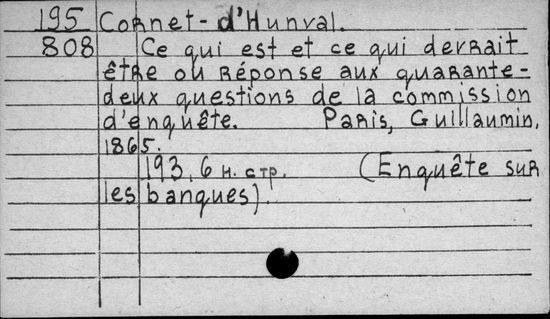 195 Cornet-d'Hunval.
808 Ce qui est et ce qui devrait
être ou réponse aux quarante-
deux questions de la commission
d'enquête. Paris, Guillaumin,
1865.
193, 6 н. стр. (Enquête sur
les banques).